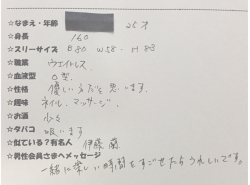 ☆なまえ・年齢 25才
☆身長 160
☆スリーサイズ B80 W58 H83
☆職業 ウエイトレス
☆血液型 O型
☆性格 優しい方だと思います。
☆趣味 ネイル、マッサージ
☆お酒 少々
☆タバコ 吸います
☆似ている?有名人 伊藤蘭
☆男性会員さまへメッセージ
一緒に楽しい時間をすごせたらうれしいです。